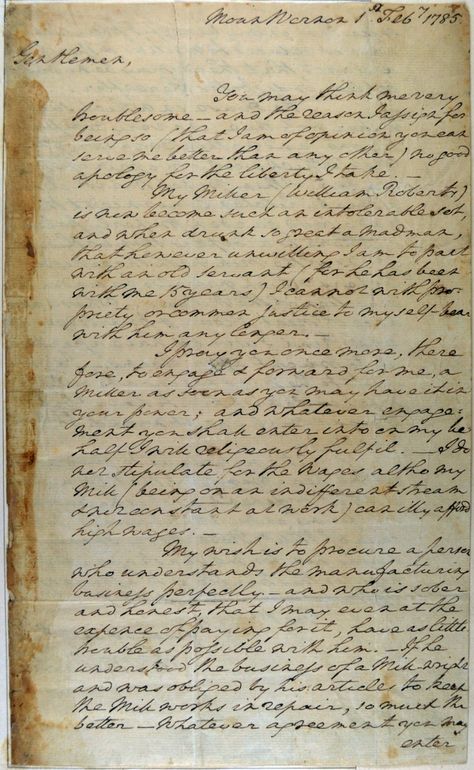 Mount Vernon 1st Feby 1785.
Gentlemen,
You may think me very
troublesome — and the reason I assign for
being so (that I am of opinion you can
serve me better than any other) no good
apology for the liberty I take. —
My Miller (William Roberts)
is now become such an intolerable sot
and when drunk so great a madman,
that however unwilling I am to part
with an old servant (for he has been
with me 15 years) I cannot with pro-
priety or common justice to myself bear
with him any longer. —
I pray you once more, there
fore, to engage & forward for me, a
Miller as soon as you may have it in
your power; and whatever engage-
ment you shall enter into on my be
half I will religeously fulfil. — I do
not stipulate for the wages altho my
Mill (being on an indifferent stream
& not constant at work) can illy afford
high wages. —
My wish is to procure a person
who understands the manufacturing
business perfectly — and who is sober
and honest, that I may even at the
expence of paying for it, have as little
trouble as possible with him. — If he
understood the business of a Mill wright
and was obliged by his articles to keep
the Mill works in repair, so much the
better — Whatever agreement you may
enter